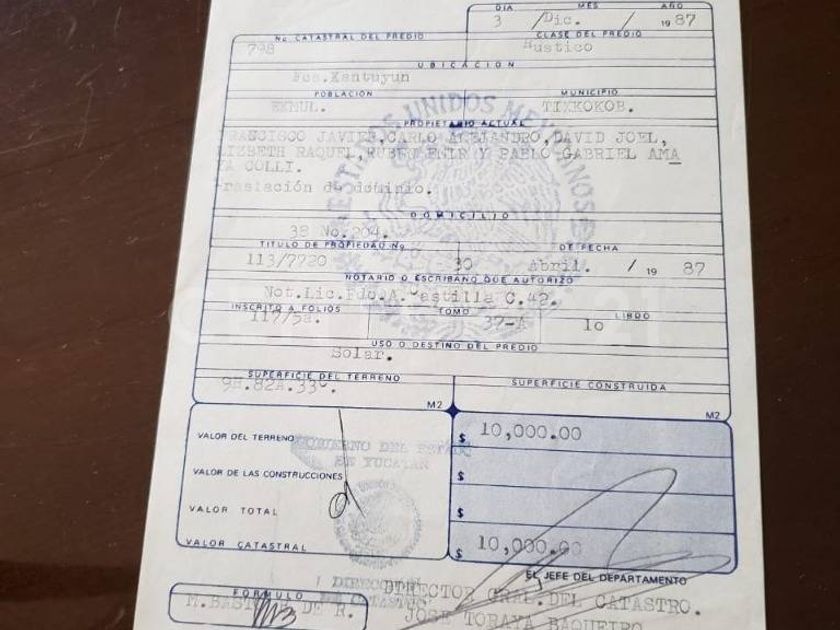 DIA MES AÑO
3 /Dic. / 1987
No. CATASTRAL DEL PREDIO CLASE DEL PREDIO
798 Rustico
UBICACION
Fca.Kantuyun
POBLACION MUNICIPIO
EKMUL. TIXKOKOB.
PROPIETARIO ACTUAL
FRANCISCO JAVIER,CARLO ALEJANDRO,DAVID JOEL,
LIZBETH RAQUEL, Y PABLO GABRIEL AMA
YA COLLI.
Traslación de dominio.
ESTADOS UNIDOS MEXICANOS
DOMICILIO
38 No.204.
TITULO DE PROPIEDAD No. DE FECHA
113/7720 30 Abril. / 1987
NOTARIO O ESCRIBANO QUE AUTORIZO
Not.Lic.Fdo.A. C.42.
INSCRITO A FOLIOS TOMO LIBRO
117/58. 37-A 1o
USO O DESTINO DEL PREDIO
Solar.
SUPERFICIE DEL TERRENO SUPERFICIE CONSTRUIDA
9H.82A.33c.
M2 M2
VALOR DEL TERRENO $ 10,000.00
GOBIERNO DEL ESTADO
DE YUCATAN
VALOR DE LAS CONSTRUCCIONES $
VALOR TOTAL $
VALOR CATASTRAL $ 10,000.00
EL JEFE DEL DEPARTAMENTO
FORMULO DIRECTOR GRAL.DEL CATASTRO.
M.BASTO DE R. JOSE TORAYA BAQUEIRO